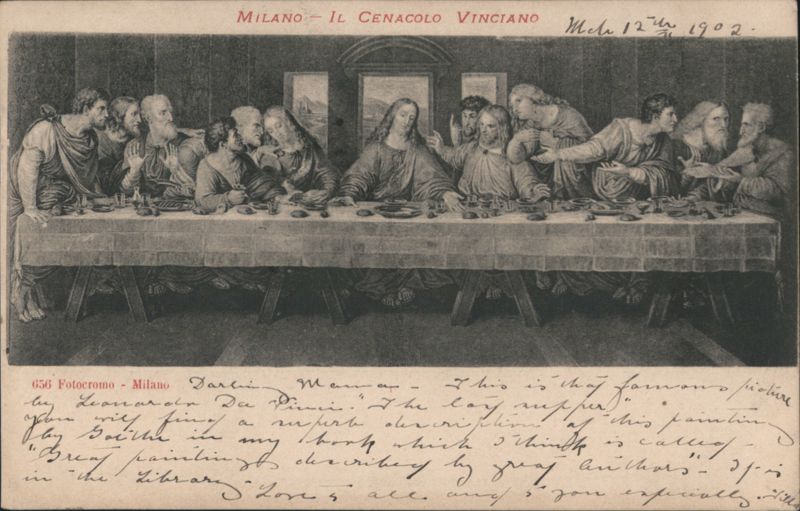 MILANO – IL CENACOLO VINCIANO
Mch 12th 1902.
656 Fotocromo - Milano
Darling Mama – This is that famous picture
by Leonardo Da Vinci. "The last supper".
you will find a superb description of this painting
by Goethe in my book which I think is called –
"Great paintings described by great Authors" – It is
in the Library – Love to all and to you especially –